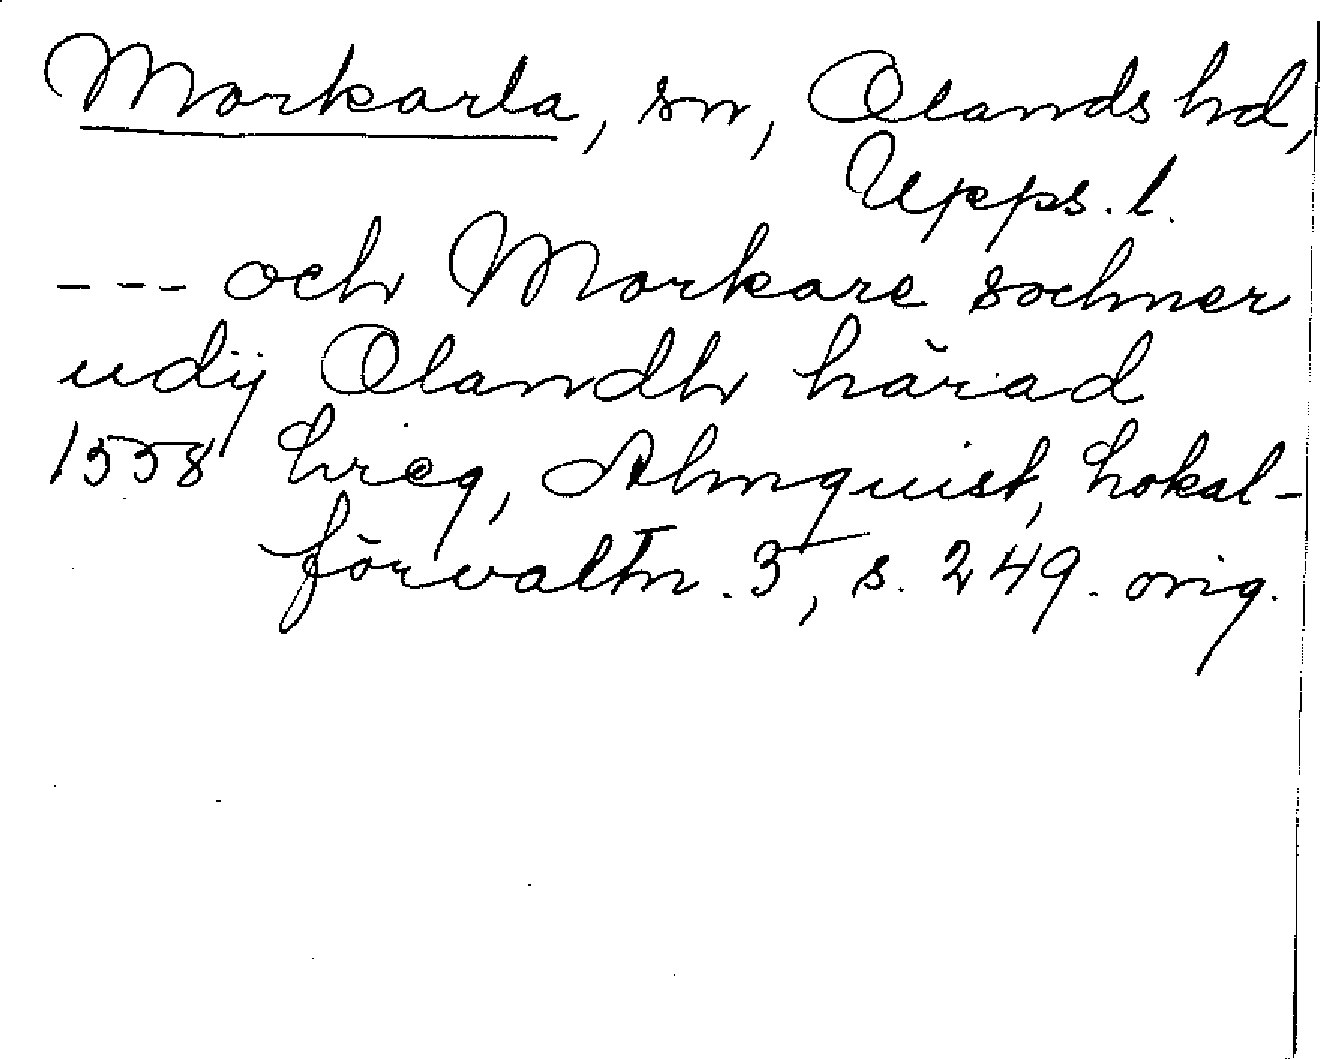 Morkarla, sn, Olands hd,
Upps. l.
--- och Morkare sochner
udij Olandh härad
1558 Lreg, Almquist, Lokal-
förvaltn. 3, s. 249. orig.